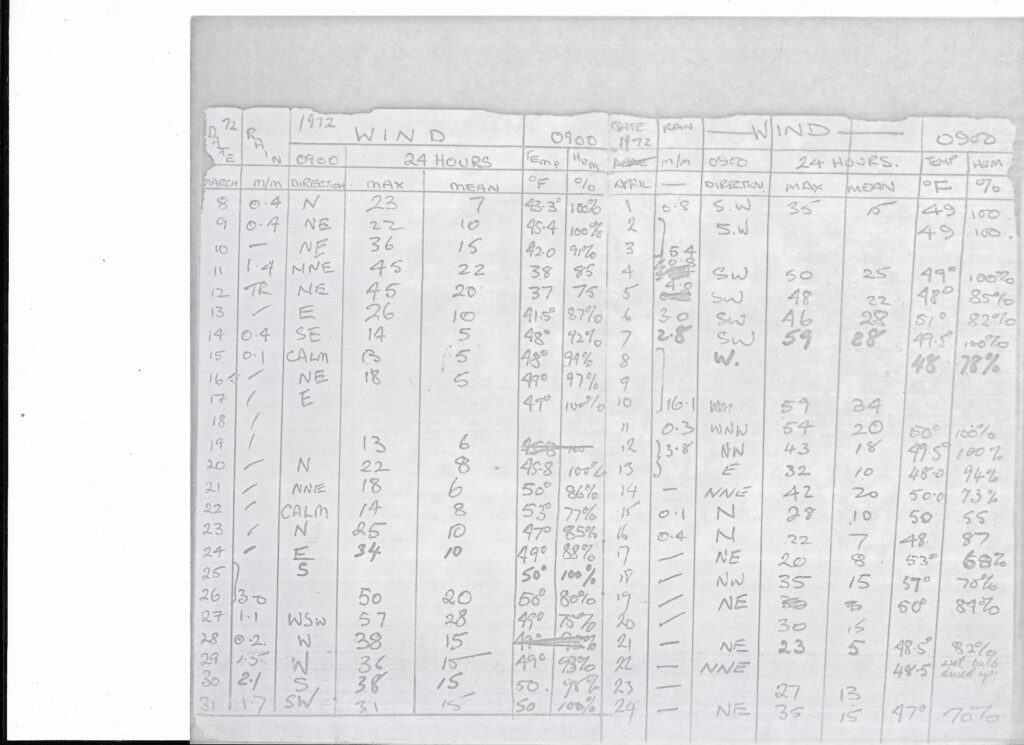 DATE 72 RAIN 1972 WIND 0900 DATE 1972 RAIN WIND 0900
0900 24 HOURS TEMP HUM m/m 0900 24 HOURS. TEMP HUM
MARCH m/m DIRECTION MAX MEAN °F % APRIL — DIRECTION. MAX MEAN °F %
8 0.4 N 23 7 43.3° 100% 1 0.8 S.W 35 15 49 100
9 0.4 NE 22 10 45.4 100% 2 S.W 49 100.
10 — NE 36 15 42.0 91% 3 5.4
11 1.4 NNE 45 22 38 85 4 SW 50 25 49° 100%
12 TR NE 45 20 37 75 5 4.0 SW 48 22 48° 85%
13 / E 26 10 41.5° 87% 6 3.0 SW 46 28 51° 82%
14 0.4 SE 14 5 48° 92% 7 2.8 SW 59 28 49.5° 100%
15 0.1 CALM 13 5 48° 94% 8 W. 48 78%
16 / NE 18 5 49° 97% 9
17 / E 49° 100% 10 16.1 59 34
18 / 11 0.3 WNN 54 20 50° 100%
19 / 13 6 45.8 100 12 3.8 NN 43 18 49.5° 100%
20 / N 22 8 45.8 100% 13 E 32 10 48.0 94%
21 / NNE 18 6 50° 86% 14 — NNE 42 20 50.0 73%
22 / CALM 14 8 53° 77% 15 0.1 N 28 10 50 55
23 / N 25 10 47° 85% 16 0.4 N 22 7 48. 87
24 / E 34 10 49° 88% 17 — NE 20 8 53° 68%
25 S 50° 100% 18 / NW 35 15 57° 70%
26 3.0 50 20 50° 80% 19 / NE 50° 84%
27 1.1 WSW 57 28 49° 75% 20 / 30 15
28 0.2 W 38 15 21 — NE 23 5 48.5° 82%
29 1.5 W 36 15 49° 93% 22 — NNE 48.5 wet bulb dried up.
30 2.1 S 38 15 50. 98% 23 — 27 13
31 1.7 SW 31 15 50 100% 24 — NE 35 15 47° 70%